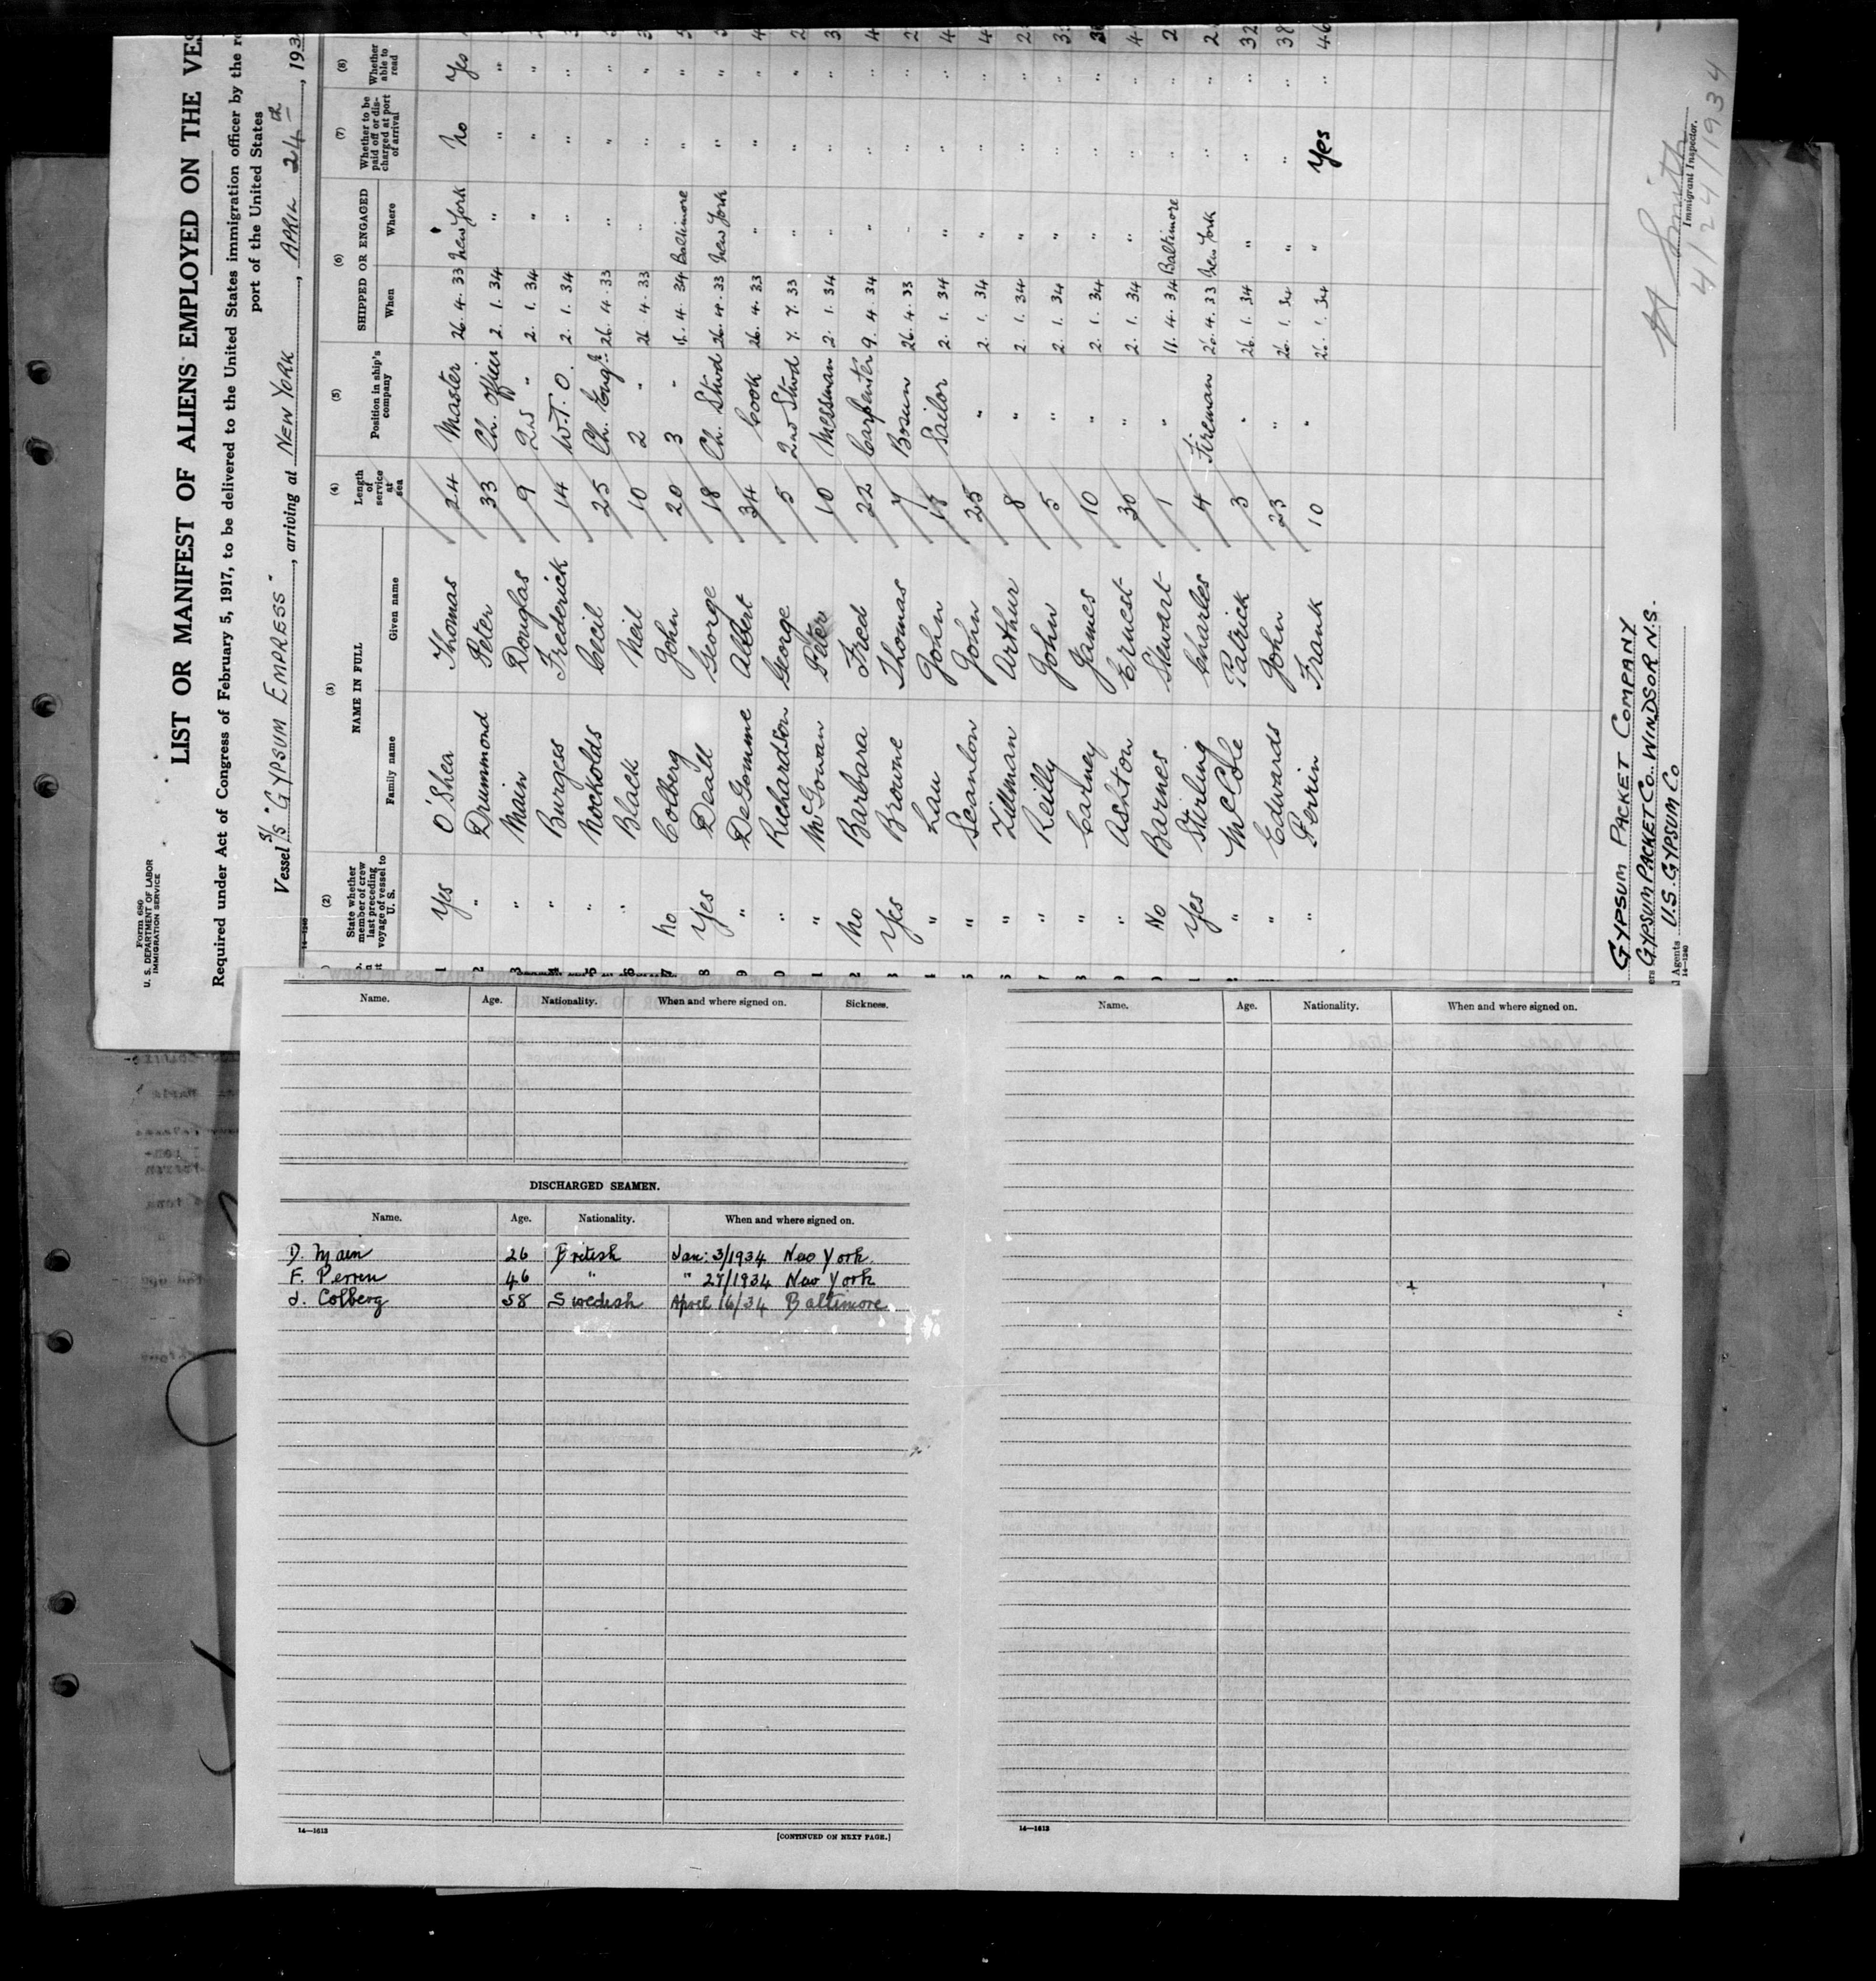 Form 680
U. S. DEPARTMENT OF LABOR
IMMIGRATION SERVICE
LIST OR MANIFEST OF ALIENS EMPLOYED ON THE VES
Required under Act of Congress of February 5, 1917, to be delivered to the United States immigration officer by the re
port of the United States
Vessel S/S "GYPSUM EMPRESS", arriving at NEW YORK, APRIL 24th, 193
14-1240
(2) (3) (4) (5) (6) (7) (8)
State whether member of crew last preceding voyage of vessel to U. S. NAME IN FULL Length of service at sea Position in ship's company SHIPPED OR ENGAGED Whether to be paid off or discharged at port of arrival Whether able to read
Family name Given name When Where
1 Yes O'Shea Thomas 24 Master 26. 4. 33 New York No Yes
2 " Drummond Peter 33 Ch. Officer 2. 1. 34 " " "
3 " Main Douglas 9 2nd " 2. 1. 34 " " "
4 " Burges Frederick 14 W.T.O. 2. 1. 34 " " "
5 " Nockolds Cecil 25 Ch. Eng'r 26. 4. 33 " " "
6 " Black Neil 10 2 " 26 4. 33 " " "
7 No Colberg John 20 3 " 4. 34 Baltimore " "
8 Yes Deall George 18 Ch. Stwd 26. 4. 33 New York " "
9 " DeGomme Albert 34 Cook 26. 4. 33 " " "
0 " Richardson George 5 2nd Stwd 7. 7. 33 " " "
1 " McGowan Peter 10 Messman 2. 1. 34 " " "
2 No Barbara Fred 22 Carpenter 9. 4. 34 " " "
3 Yes Browne Thomas 7 Bosun 26. 4. 33 " " "
4 " Law John Sailor 2. 1. 34 " " "
5 " Scanlon John 25 " 2. 1. 34 " " "
6 " Tillman Arthur 8 " 2. 1. 34 " " "
7 " Reilly John 5 " 2. 1. 34 " " "
8 " Carney James 10 " 2. 1. 34 " " "
9 " Ashton Ernest 30 " 2. 1. 34 " " "
0 No Barnes Stewart 1 " 11. 4. 34 Baltimore " "
1 Yes Stirling Charles 4 Fireman 26. 4. 33 New York " "
2 " McCole Patrick 3 " 26. 1. 34 " " " 32
" Edwards John 23 " 26. 1. 34 " " " 38
" Perrin Frank 10 " 26. 1. 34 " Yes " 46
GYPSUM PACKET COMPANY
ers GYPSUM PACKET CO. WINDSOR N.S.
Agents U.S. GYPSUM CO
14-1240
Smith
Immigrant Inspector.
4/24/1934
Name. Age. Nationality. When and where signed on. Sickness.
DISCHARGED SEAMEN.
Name. Age. Nationality. When and where signed on.
D. Main 26 British Jan: 3/1934 New York.
F. Perren 46 " " 27/1934 New York
J. Colberg 58 Swedish April 16/34 Baltimore
14—1613
[CONTINUED ON NEXT PAGE.]
Name. Age. Nationality. When and where signed on.
14—1613